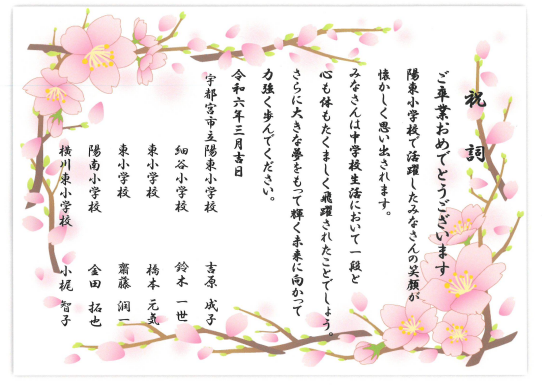 祝詞
ご卒業おめでとうございます
陽東小学校で活躍したみなさんの笑顔が
懐かしく思い出されます。
みなさんは中学校生活において一段と
心も体もたくましく飛躍されたことでしょう。
さらに大きな夢をもって輝く未来に向かって
力強く歩んでください。
令和六年三月吉日
宇都宮市立陽東小学校 吉原 成子
細谷小学校 鈴木 一世
東小学校 橋本 元気
東小学校 齋藤 潤一
陽南小学校 金田 拓也
横川東小学校 小梶 智子